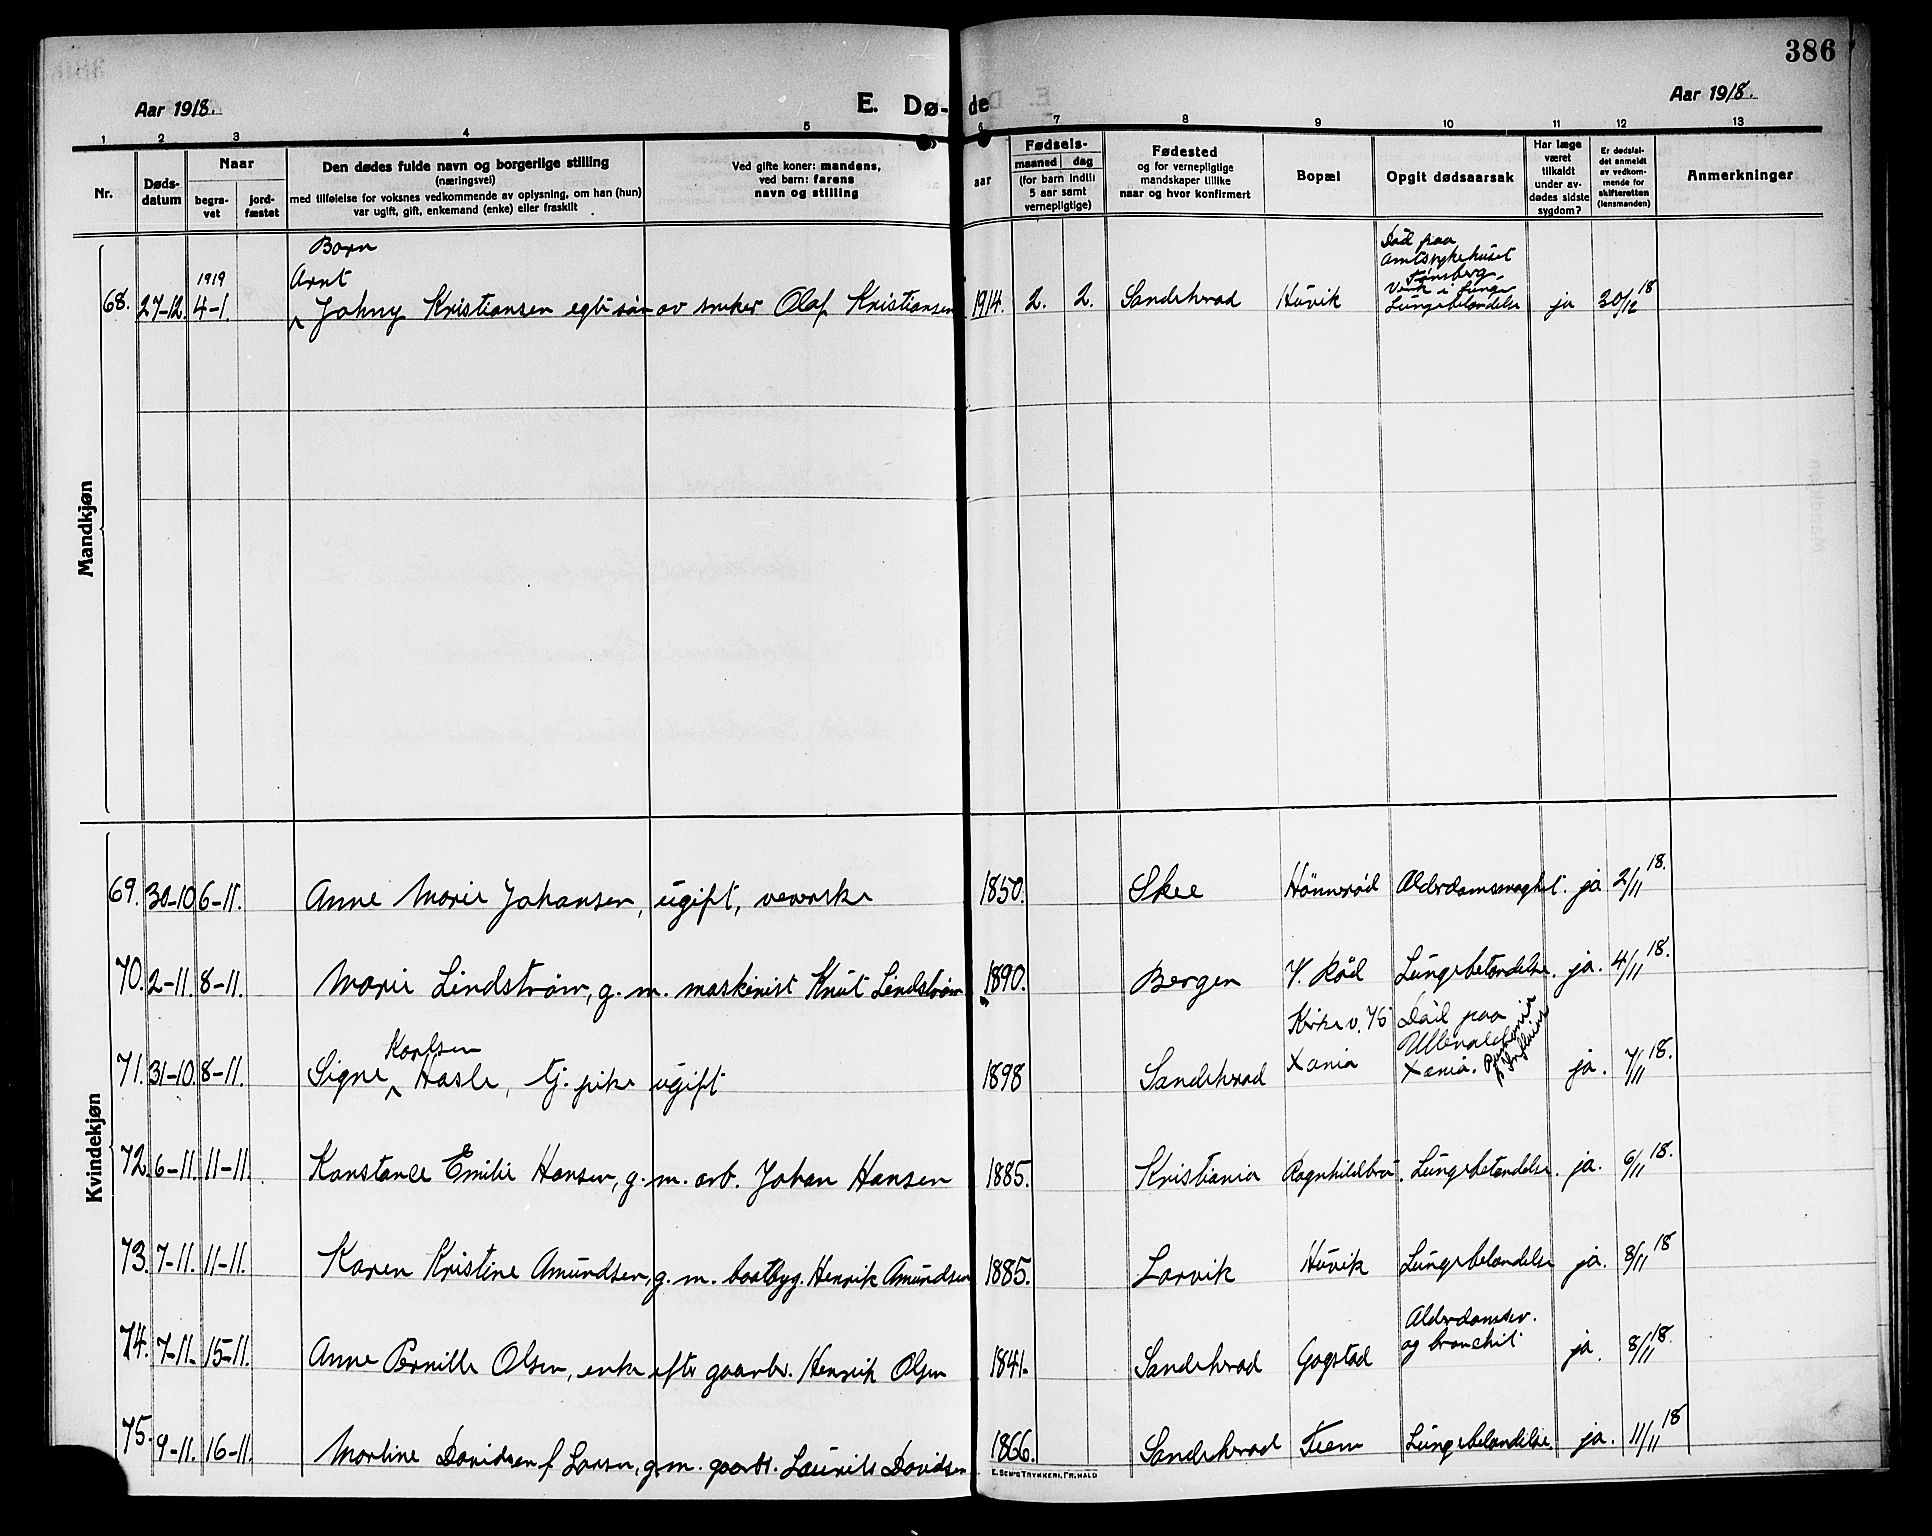 386
Aar 1918.
E. Dø- de
Aar 1918.
1 2 3 4 5 6 7 8 9 10 11 12 13
Nr.
Døds-
datum
Naar
begra-
vet
jord-
fæstet
Den dødes fulde navn og borgerlige stilling
(næringsvei)
med tilføielse for voksnes vedkommende av oplysning, om han (hun)
var ugift, gift, enkemand (enke) eller fraskilt
Ved gifte koner: mandens,
ved barn: farens
navn og stilling
aar
Fødsels-
maaned dag
(for barn indtil
5 aar samt
vernepligtige)
Fødested
og for vernepligtige
mandskaper tillike
naar og hvor konfirmert
Bopæl
Opgit dødsaarsak
Har læge
været
tilkaldt
under av-
dødes sidste
sygdom?
Er dødsfal-
det anmeldt
av vedkom-
mende for
skifteretten
(lensmanden)
Anmerkninger
Mandkjøn
Barn
1919
Arnt
68. 27-12. 4-1. Johny Kristiansen egte søn av sneker Olaf Kristiansen 1914. 2. 2. Sandeherad Huvik
Död paa
Amtssykehuset
Tønsberg.
Verk i Lunge
Lungebetændelse ja 30/12 18
Kvindekjøn
69. 30-10 6-11. Anne Marie Johansen, ugift, væverske 1850. Skee Hönnerød Alderdomssvaghet. ja 2/11 18.
70. 2-11. 8-11. Marie Lindstrøm, g. m. maskinist Knut Lindstrøm 1890. Bergen V. Röd Lungebetændelse. ja. 4/11 18.
71. 31-10. 8-11. Signe Karlsen Hasle, tj. pike ugift 1898 Sandeherad
Kirkev. 75
Xania
Död paa
Ullevaal
Xania. ja. 7/11 18.
72. 6-11. 11-11. Konstance Emilie Hansen, g. m. arb. Johan Hansen 1885. Kristiania Ragnhildbro. Lungebetændelse. ja. 6/11 18.
73. 7-11. 11-11. Karen Kristine Amundsen, g. m. baatbyg. Henrik Amundsen 1885. Larvik Huvik Lungebetændelse ja. 8/11 18
74. 7-11. 15-11. Anne Pernille Olsen, enke efter gaardbr. Henrik Olsen 1841. Sandeherad Gogstad
Alderdomssv.
og bronchit ja. 8/11 18.
75. 9-11. 16-11. Martine Davidsen f. Larsen, g. m. gaardbr. Laurits Davidsen 1866. Sandeherad Fiem Lungebetændelse. ja. 11/11 18
E. SEM'S TRYKKERI, FR.HALD